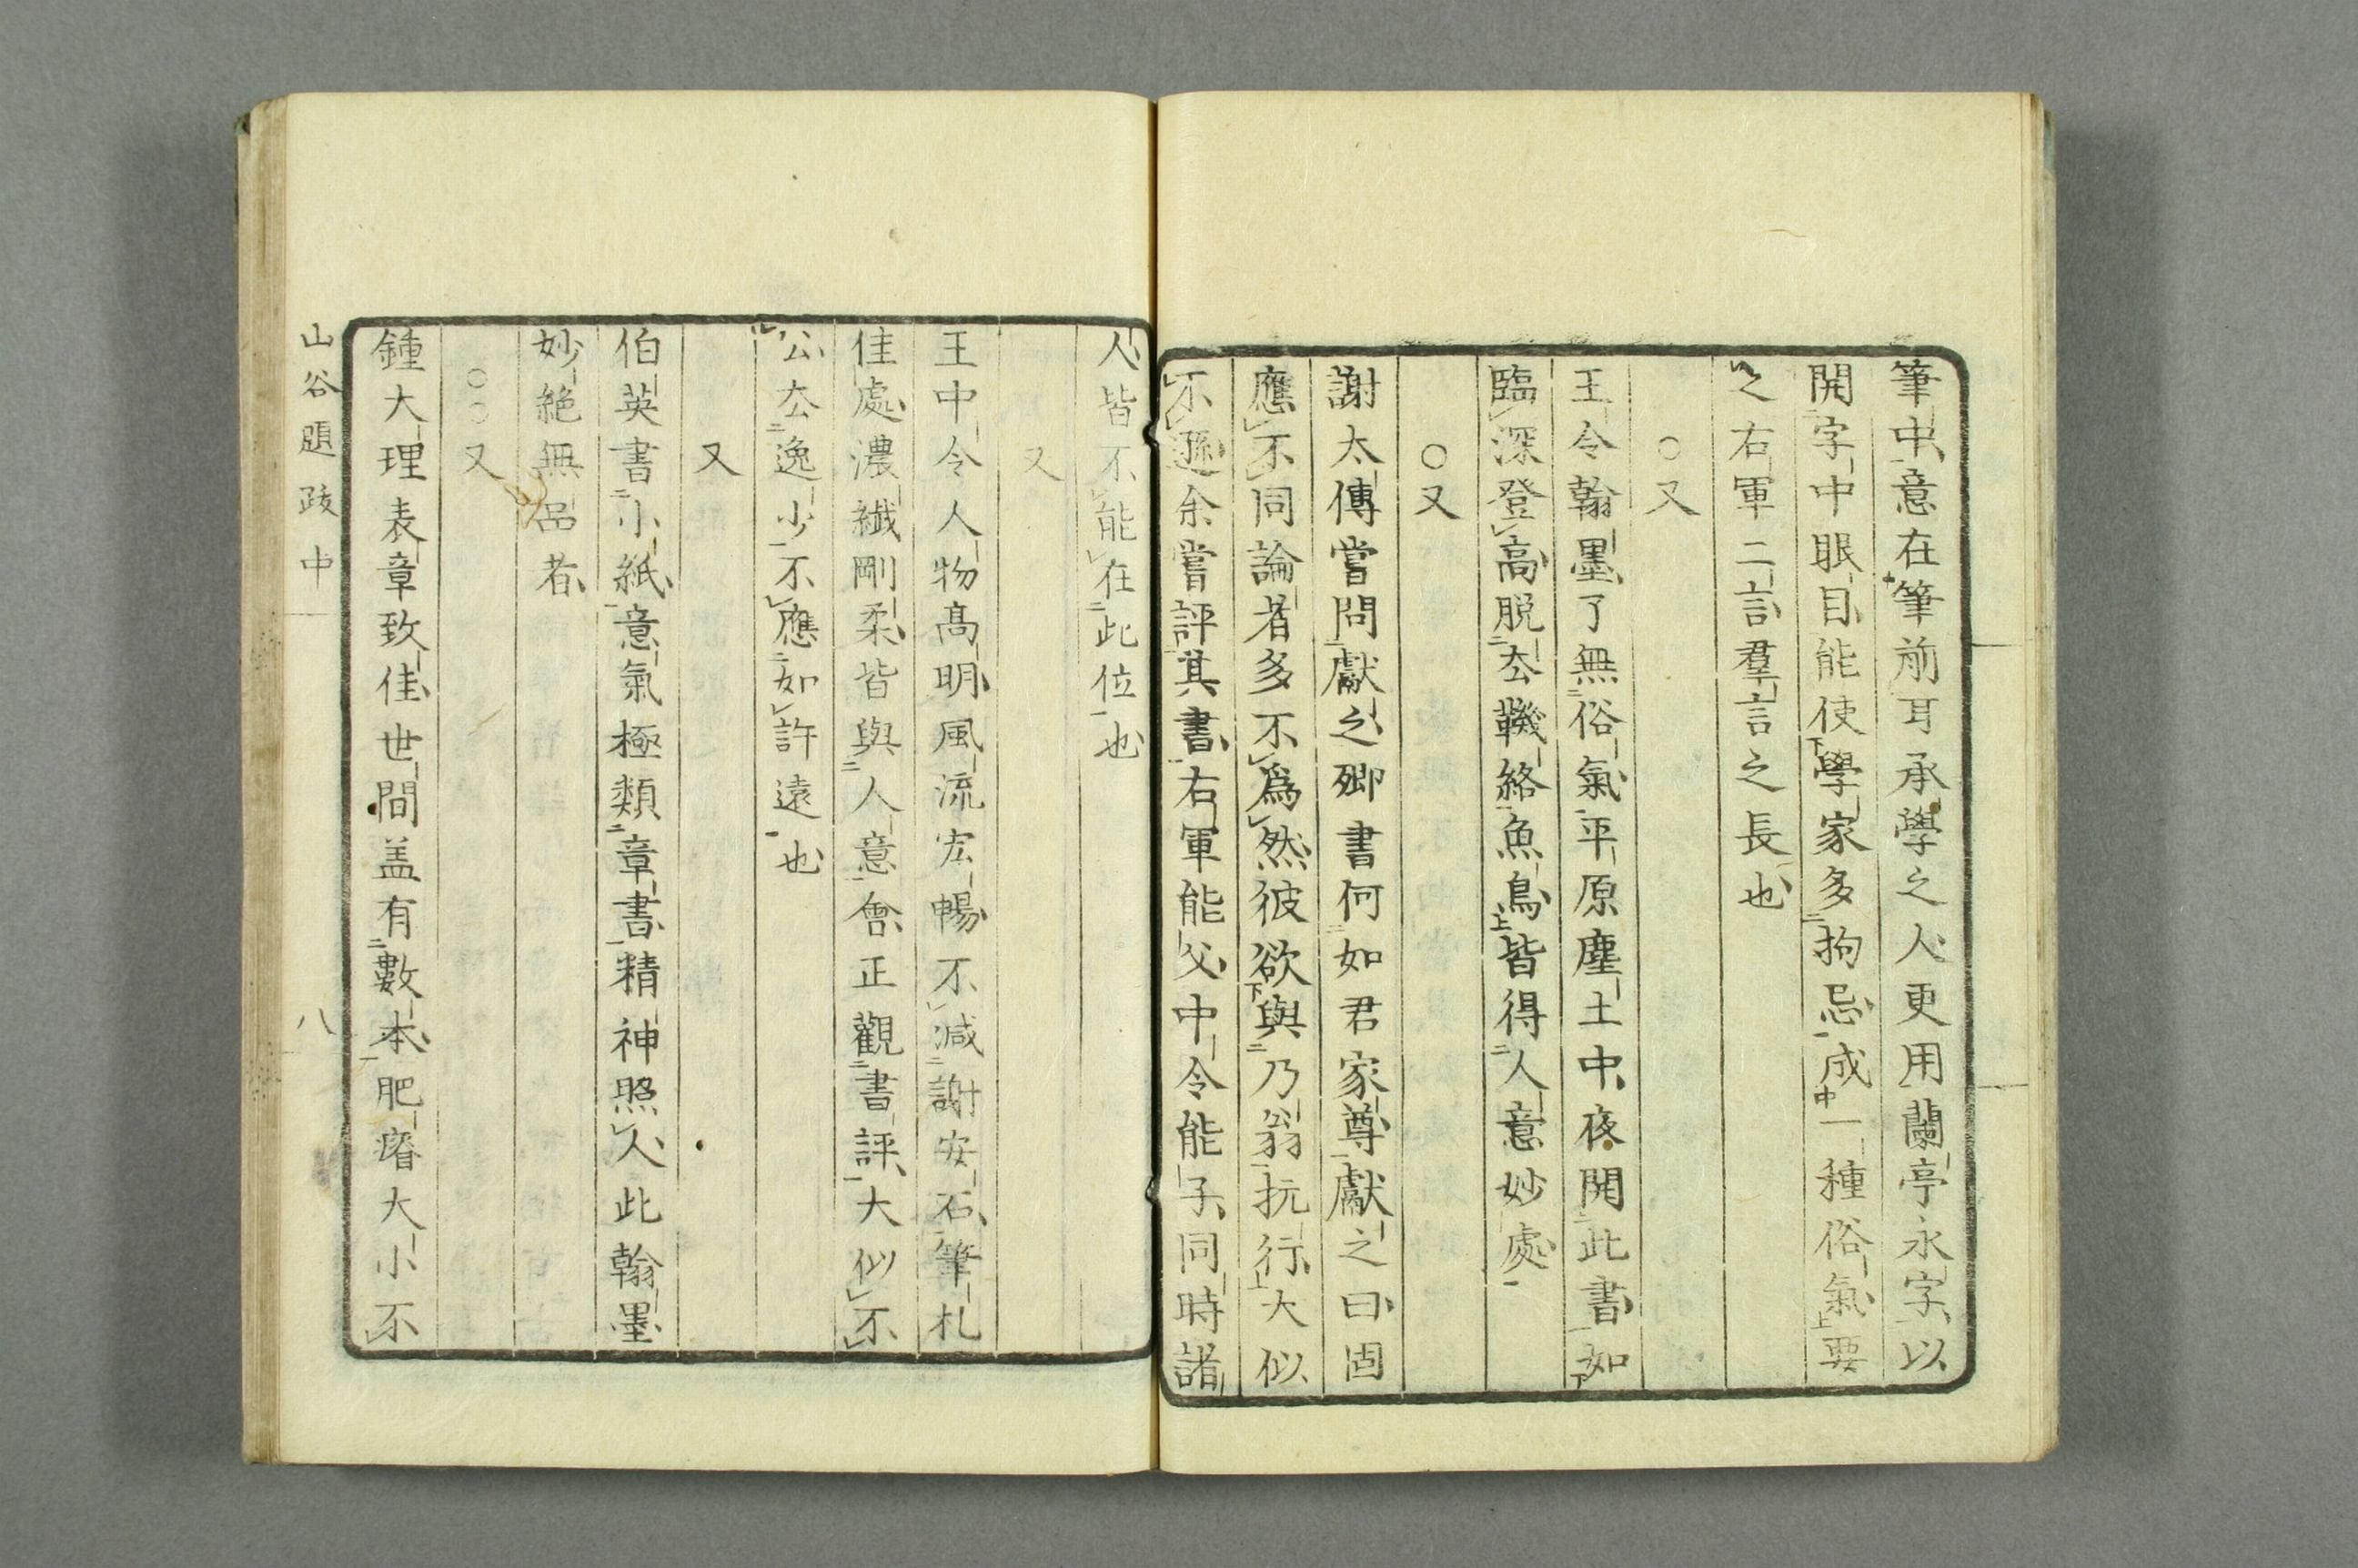 筆中意在筆前耳承學之人更用蘭亭永字以
開字中眼目能使學家多拘忌成一種俗氣要
之右軍二言羣言之長也
○又
王令翰墨了無俗氣平原塵土中夜開此書如
臨深登高脱厺鞿絡魚鳥皆得人意妙處
○又
謝太傅嘗問獻之卿書何如君家尊獻之曰固
應不同論者多不爲然彼欲與乃翁抗行大似
不遜余嘗評其書右軍能父中令能子同時諸
人皆不能在此位也
又
王中令人物髙明風流宏暢不減謝安石筆札
佳處濃纖剛柔皆與人意會正觀書評大似不
公厺逸少不應如許遠也
又
伯英書小紙意氣極類章書精神照人此翰墨
妙絶無品者
○○又
鍾大理表章致佳世間盖有數本肥瘠大小不
山谷題跋中
八